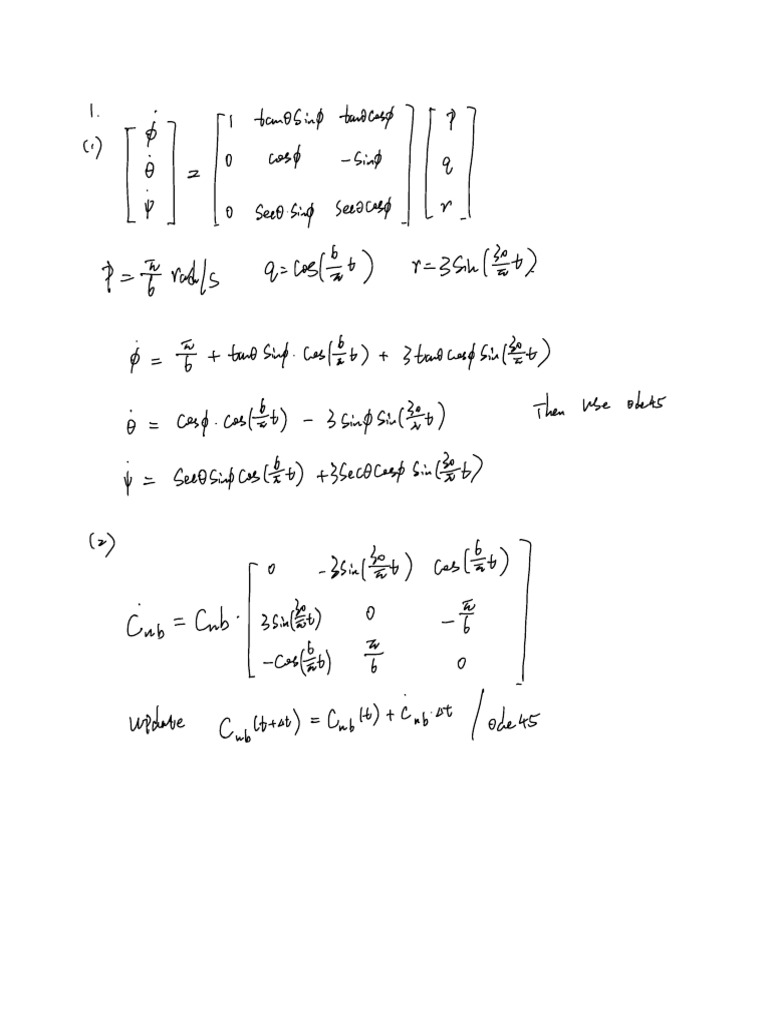 1.
(1) [ϕ̇ θ̇ ψ̇] = [1 tanθsinϕ tanθcosϕ; 0 cosϕ -sinϕ; 0 secθ·sinϕ secθcosϕ] [p q r]
p = π/6 rad/s q = cos(6/π t) r = 3sin(30/π t)
ϕ̇ = π/6 + tanθ sinϕ·cos(6/π t) + 3tanθcosϕ sin(30/π t)
θ̇ = cosϕ·cos(6/π t) - 3sinϕ sin(30/π t) Then use ode45
ψ̇ = secθ sinϕ cos(6/π t) + 3secθcosϕ sin(30/π t)
(2)
Ċnb = Cnb · [0 -3sin(30/π t) cos(6/π t); 3sin(30/π t) 0 -π/6; -cos(6/π t) π/6 0]
update Cnb(t+Δt) = Cnb(t) + Ċnb·Δt / ode45